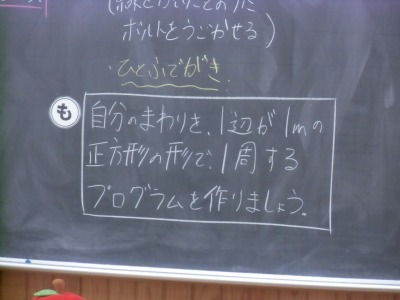 ボルトをうごかせる)
・ひとふでがき
も
自分のまわりを、1辺が1mの
正方形の形で、1周する
プログラムを作りましょう。